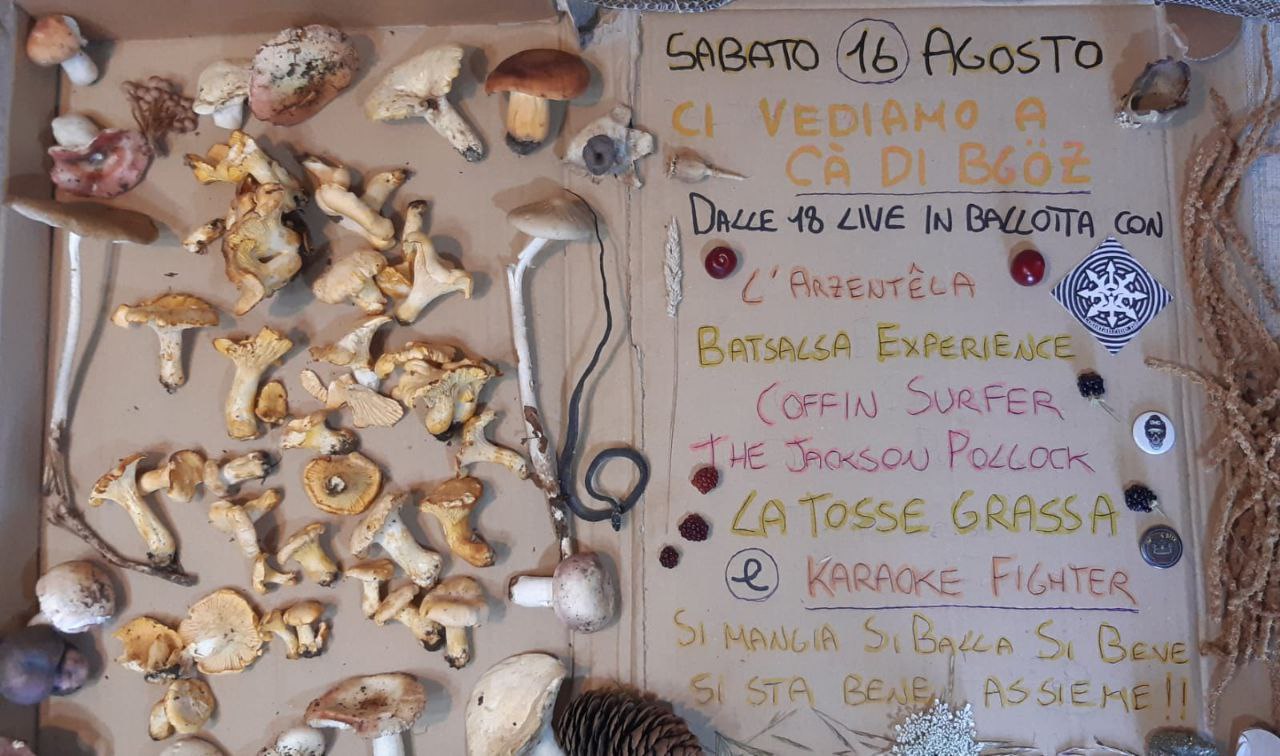 SABATO 16 AGOSTO
CI VEDIAMO A
CÀ DI BGÖZ
DALLE 18 LIVE IN BALLOTTA CON
L'ARZENTÊLA
BATSALSA EXPERIENCE
COFFIN SURFER
THE JACKSON POLLOCK
LA TOSSE GRASSA
e KARAOKE FIGHTER
SI MANGIA SI BALLA SI BEVE
SI STA BENE ASSIEME!!